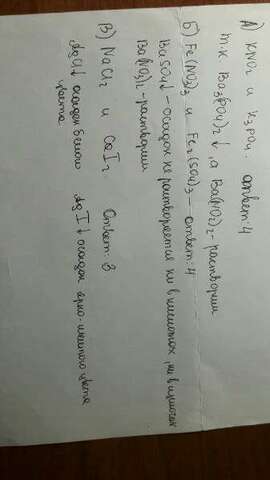 А) KNO2 и K3PO4. ответ: 4
т.к Ba3(PO4)2↓, а Ba(NO2)2-растворим
Б) Fe(NO3)3 и Fe2(SO4)3 – ответ: 4
BaSO4↓ – осадок не растворяется ни в кислотах, ни в щелочах
Ba(NO3)2 - растворим
В) NaCl2 и CaI2 Ответ: 3
AgCl↓ осадок белого AgI↓ осадок ярко-желтого цвета
цвета